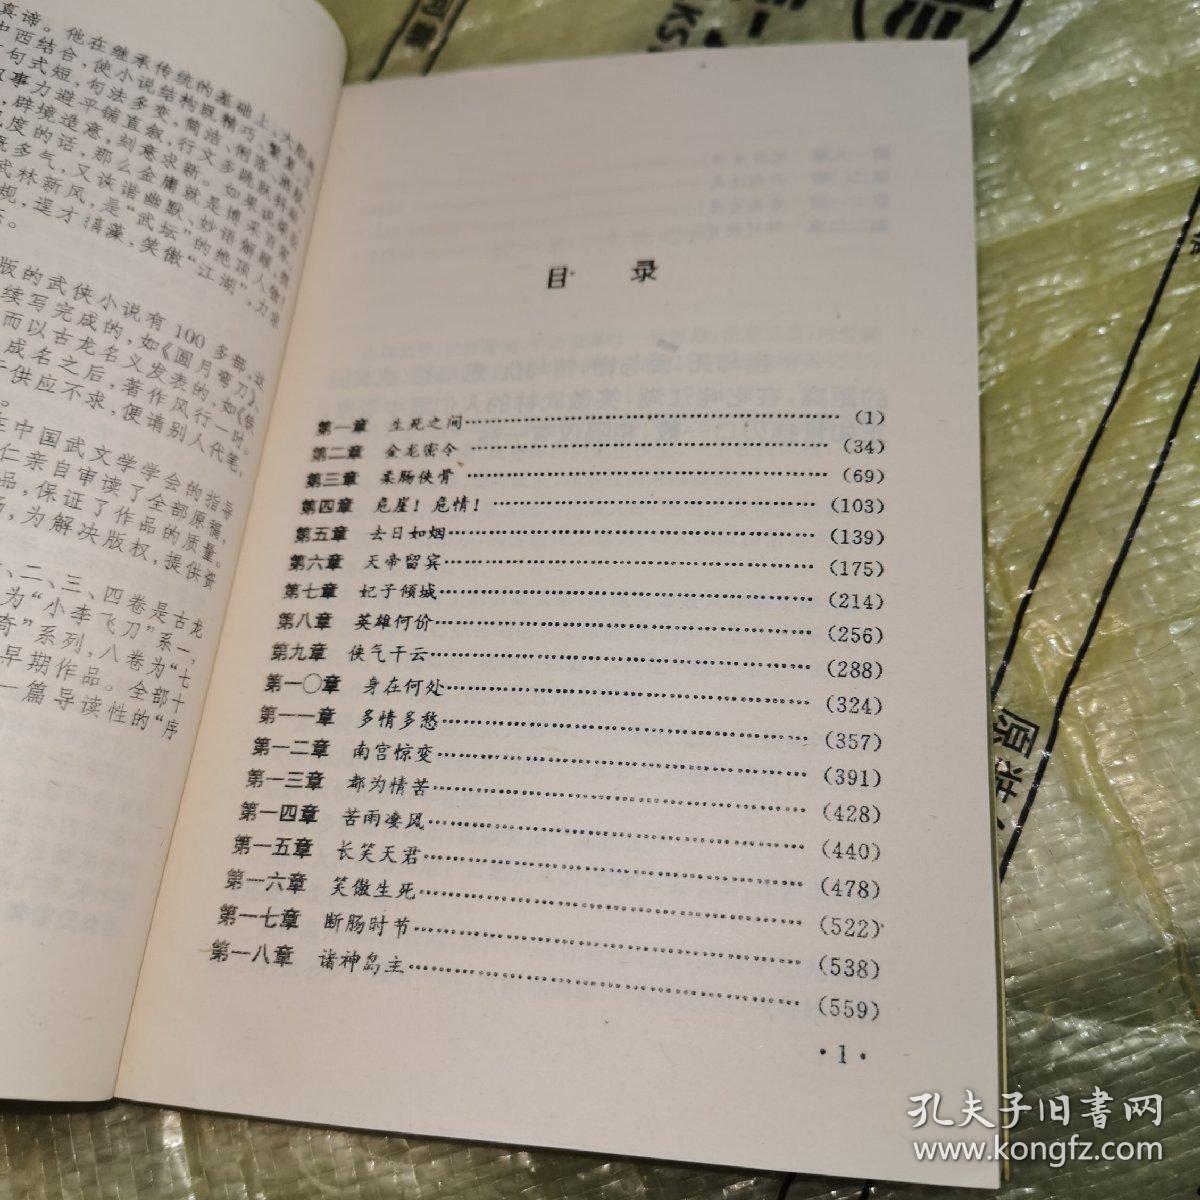 真谛。他在继承传统的基础上，大胆
中西结合，使小说结构既精巧、繁复
句式短，句法多变，简洁、俐落
叙事力避平铺直叙，行文多跳跃
，辟境造意，刻意求新。如果说梁
风度的话，那么金庸就是博采百家
多气，又诙谐幽默、妙语解颐
武林新风，是“武坛”的绝顶人物！
规，逞才摛藻，笑傲“江湖”，力求
版的武侠小说有100多部，这
续写完成的，如《圆月弯刀》、
而以古龙名义发表的，如《铁
成名之后，著作风行一时。
供应不求，便请别人代笔，
在中国武文学学会的指导
仁亲自审读了全部原稿，
品，保证了作品的质量。
，为解决版权，提供资
、二、三、四卷是古龙
为“小李飞刀”系一，
奇”系列，八卷为“七
早期作品。全部十
一篇导读性的“序
目　录
第一章　生死之间……(1)
第二章　金龙密令……(34)
第三章　柔肠侠骨……(69)
第四章　危崖！危情！……(103)
第五章　去日如烟……(139)
第六章　天帝留宾……(175)
第七章　妃子倾城……(214)
第八章　英雄何价……(256)
第九章　侠气干云……(288)
第一〇章　身在何处……(324)
第一一章　多情多愁……(357)
第一二章　南宫惊变……(391)
第一三章　都为情苦……(428)
第一四章　苦雨凄风……(440)
第一五章　长笑天君……(478)
第一六章　笑傲生死……(522)
第一七章　断肠时节……(538)
第一八章　诸神岛主……(559)
·1·
原装
孔夫子旧书网
www.kongfz.com